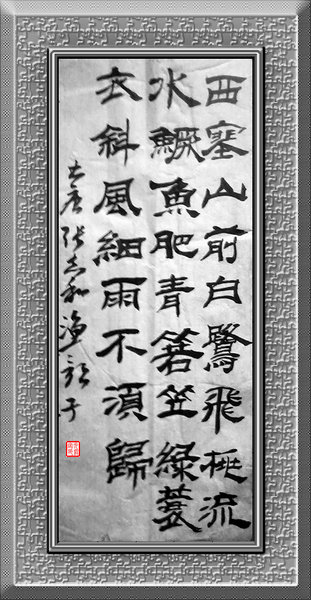 西塞山前白鷺飛桃流
水鱖魚肥青箬笠綠蓑
衣斜風細雨不須歸
大唐張志和漁歌子